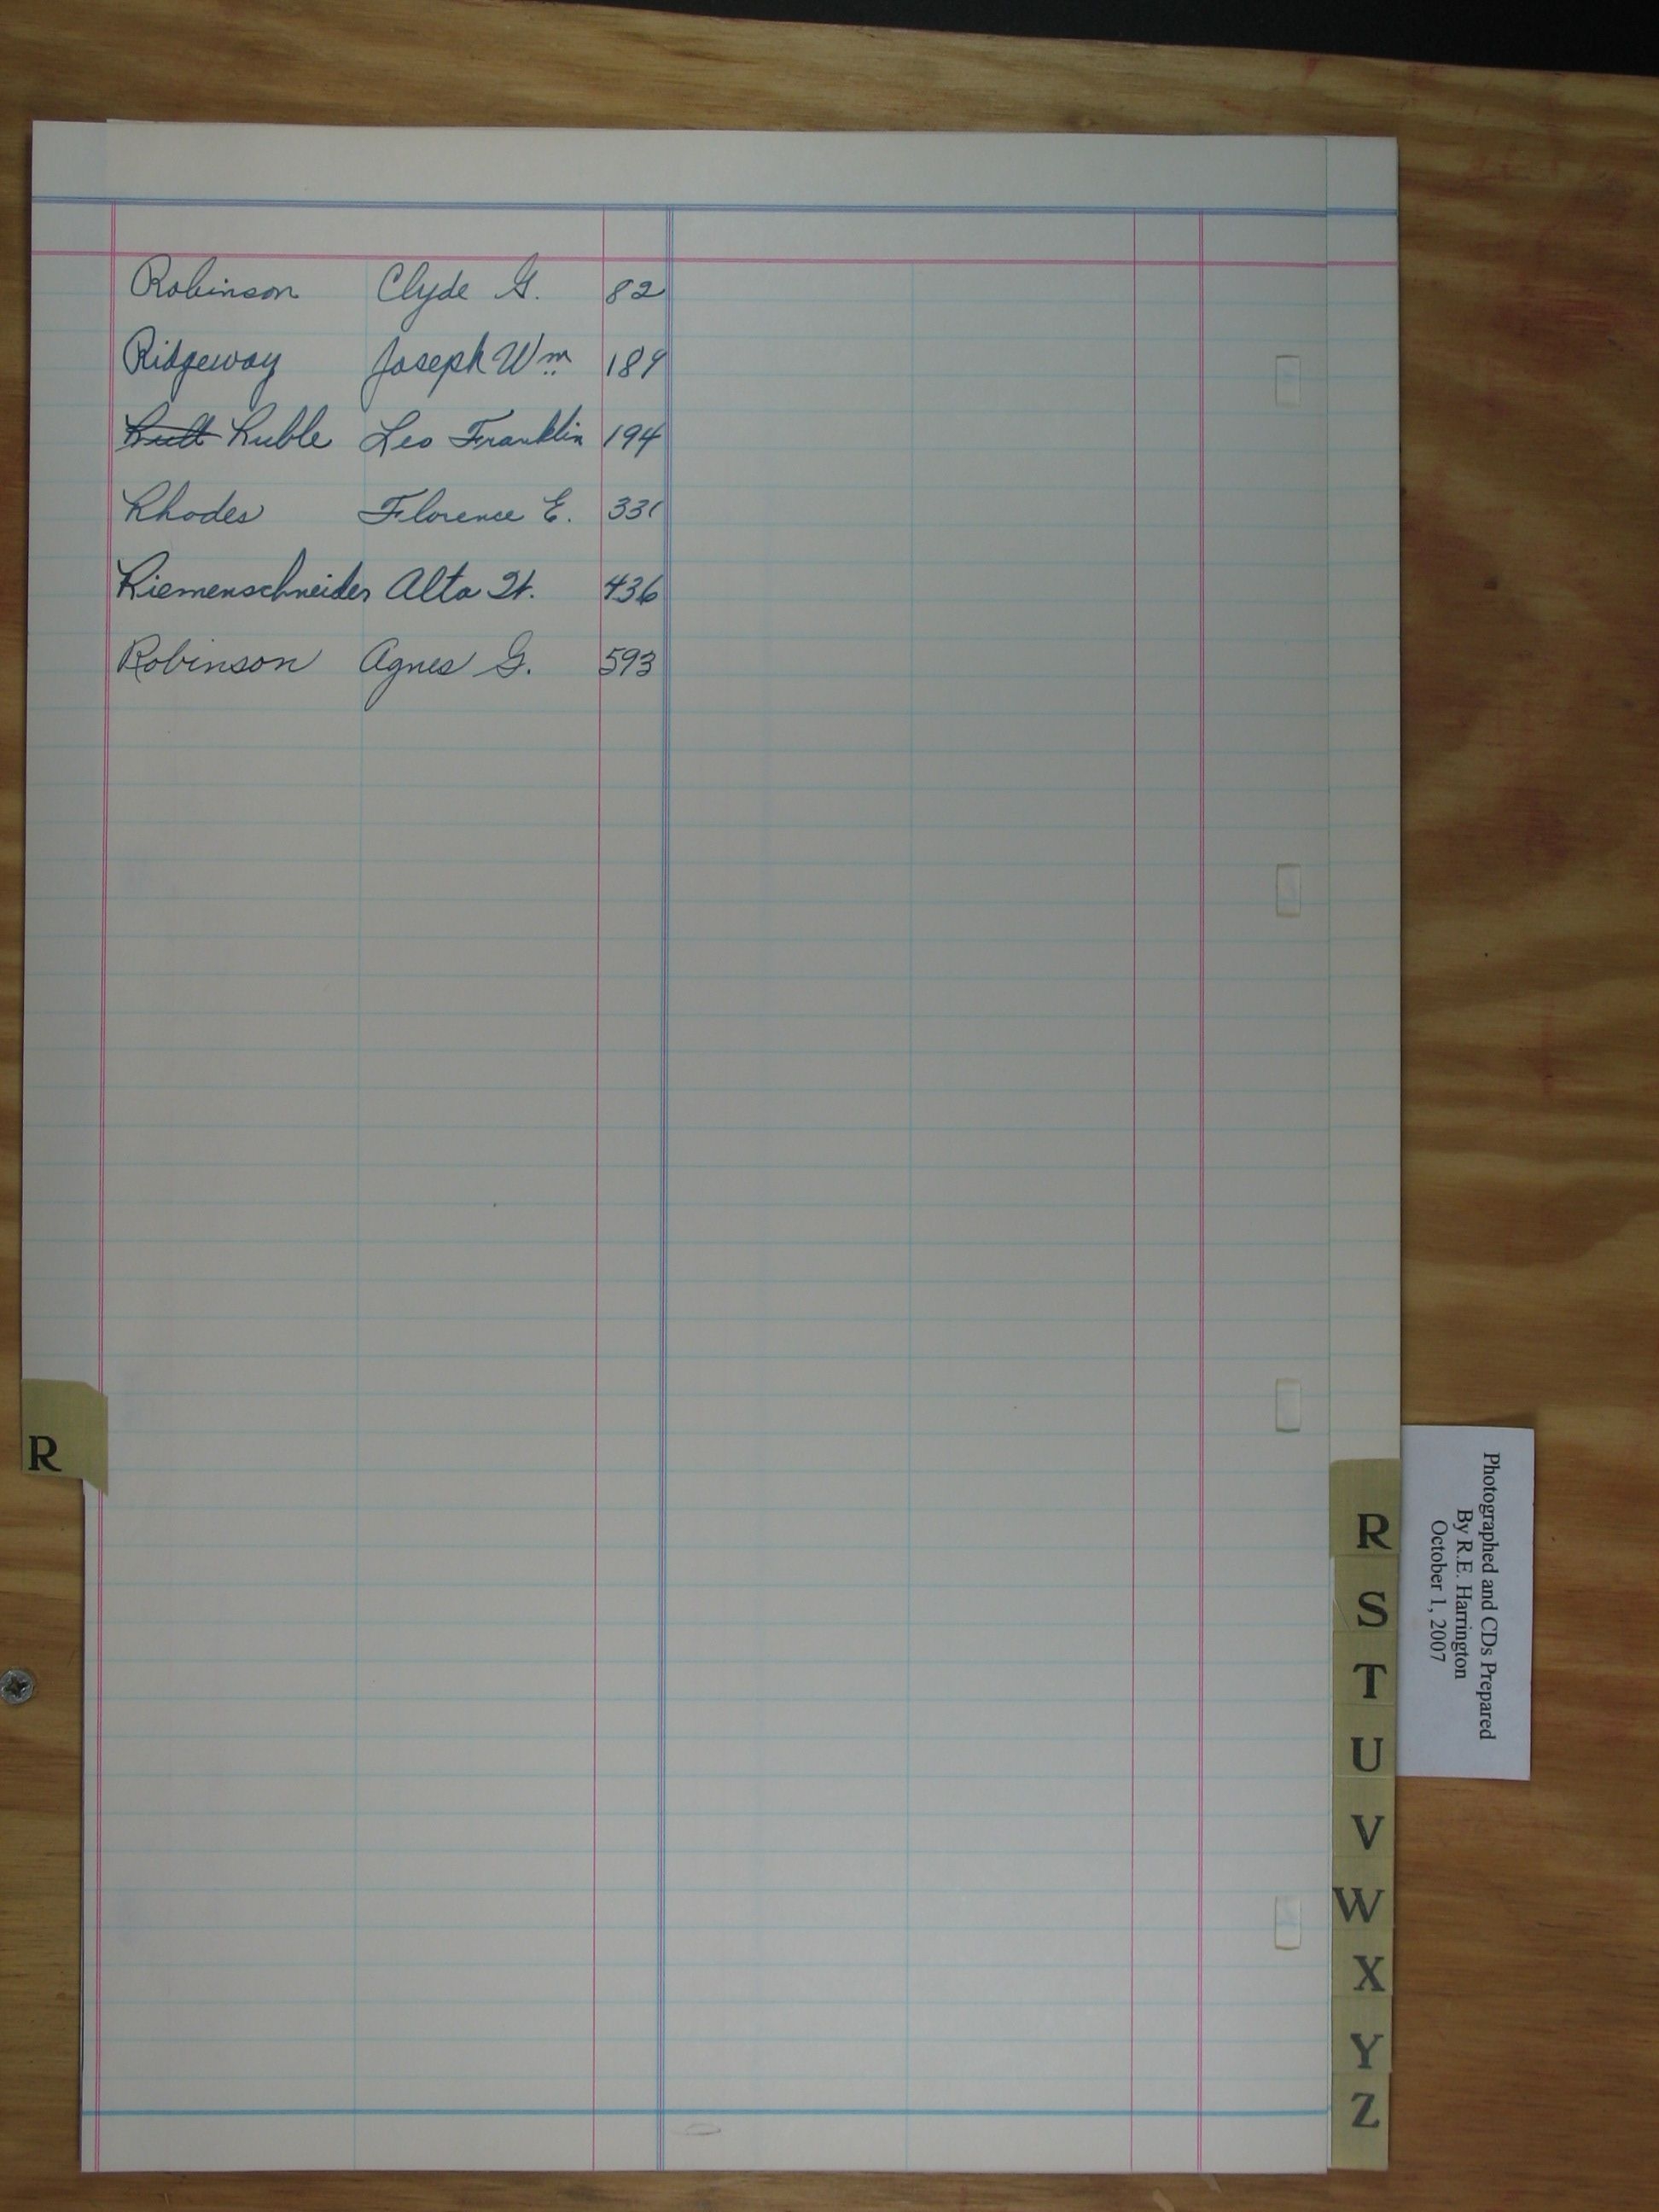 Robinson Clyde G. 82
Ridgeway Joseph Wm 189
Ruble Leo Franklin 194
Rhodes Florence E. 331
Riemenschneider Alta H. 436
Robinson Agnes G. 593
R
R
S
T
U
V
W
X
Y
Z
Photographed and CDs Prepared
By R.E. Harrington
October 1, 2007